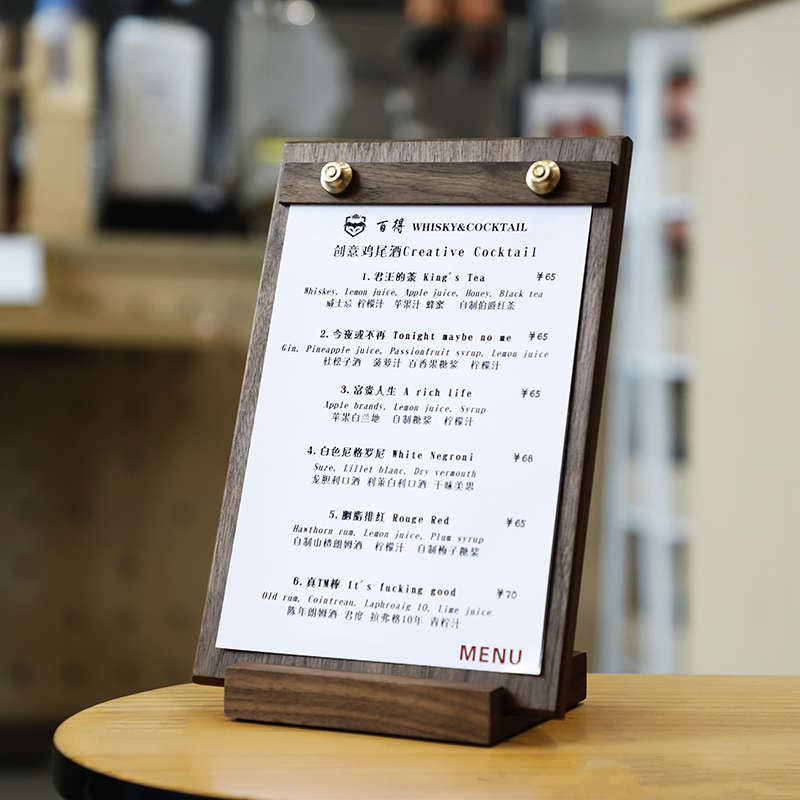 百得 WHISKY&COCKTAIL
创意鸡尾酒Creative Cocktail
1.君王的茶 King's Tea ¥65
Whiskey, Lemon juice, Apple juice, Honey, Black tea
威士忌 柠檬汁 苹果汁 蜂蜜 自制伯爵红茶
2.今夜或不再 Tonight maybe no me ¥65
Gin, Pineapple juice, Passionfruit syrup, Lemon juice
杜松子酒 菠萝汁 百香果糖浆 柠檬汁
3.富贵人生 A rich life ¥65
Apple brands, Lemon juice, Syrup
苹果白兰地 自制糖浆 柠檬汁
4.白色尼格罗尼 White Negroni ¥68
Suze, Lillet blanc, Dry vermouth
龙胆利口酒 利莱白利口酒 干味美思
5.胭脂绯红 Rouge Red ¥65
Hawthorn rum, Lemon juice, Plum syrup
自制山楂朗姆酒 柠檬汁 自制梅子糖浆
6.真TM棒 It's fucking good ¥70
Old rum, Cointreau, Laphroaig 10, Lime juice
陈年朗姆酒 君度 拉弗格10年 青柠汁
MENU